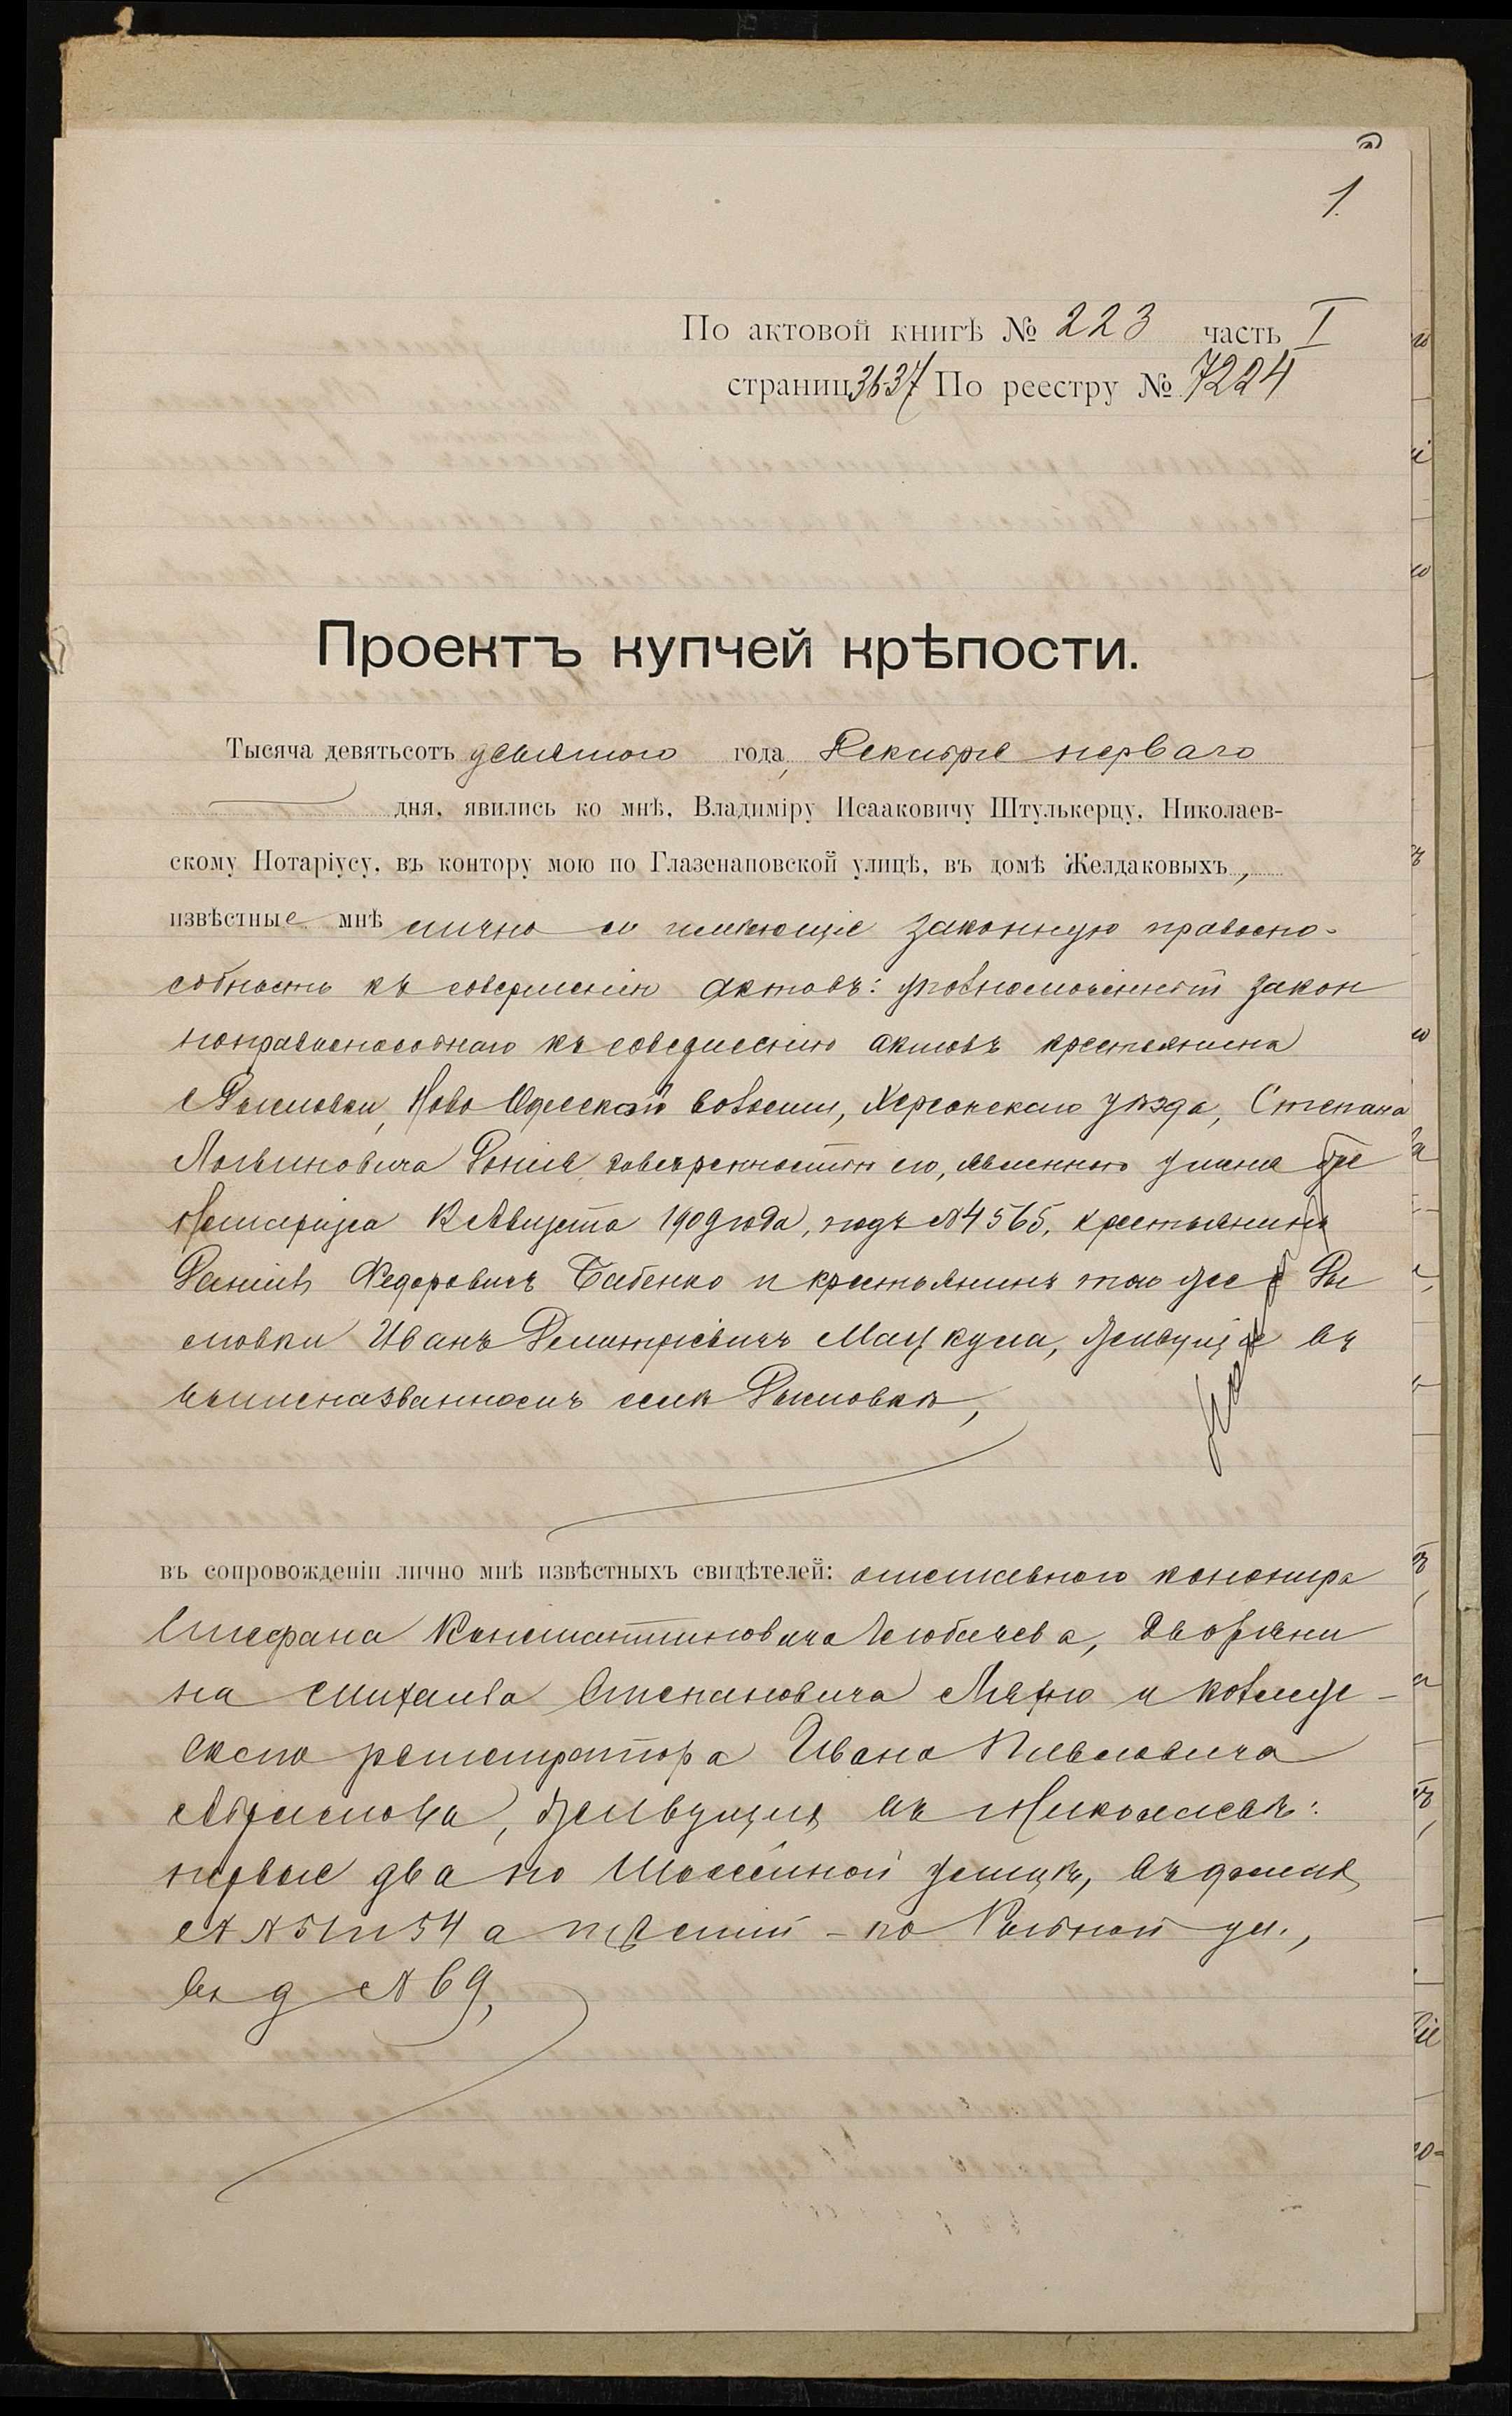 1.
По актовой книгѣ № 223 часть I
страниц 36-37 По реестру № 7224
Проектъ купчей крѣпости.
Тысяча девятьсотъ девятого года, Декабря перваго
дня, явились ко мнѣ, Владиміру Исааковичу Штулькерцу, Николаев-
скому Нотаріусу, въ контору мою по Глазенаповской улицѣ, въ домѣ Желдаковыхъ,
извѣстные мнѣ лично и имѣющіе законную правоспо-
собность къ совершенію актовъ: уполномоченный закон
ноправоспособнаго къ совершенію актовъ крестьянина
Ново Одесской волости, Херсонскаго уѣзда, Степана
Логвиновича довѣренностью его, явленною у меня
Нотаріуса Августа 1909 года, подъ № 4565, крестьянинъ
Даніилъ Федоровичъ Бабенко и крестьянинъ той же
Иванъ Дмитріевичъ Мацкула, живущіе въ
вышеназванномъ селѣ
въ сопровожденіи лично мнѣ извѣстныхъ свидѣтелей: отставного канонира
Стефана Константиновича дворяни
на Михаила Степановича и коллеж-
скаго регистратора Ивана Павловича
живущихъ въ Николаевѣ:
первые два по улицѣ, въ домахъ
№ № 51 и 54 а третій - по Рыбной ул.,
въ д № 69,